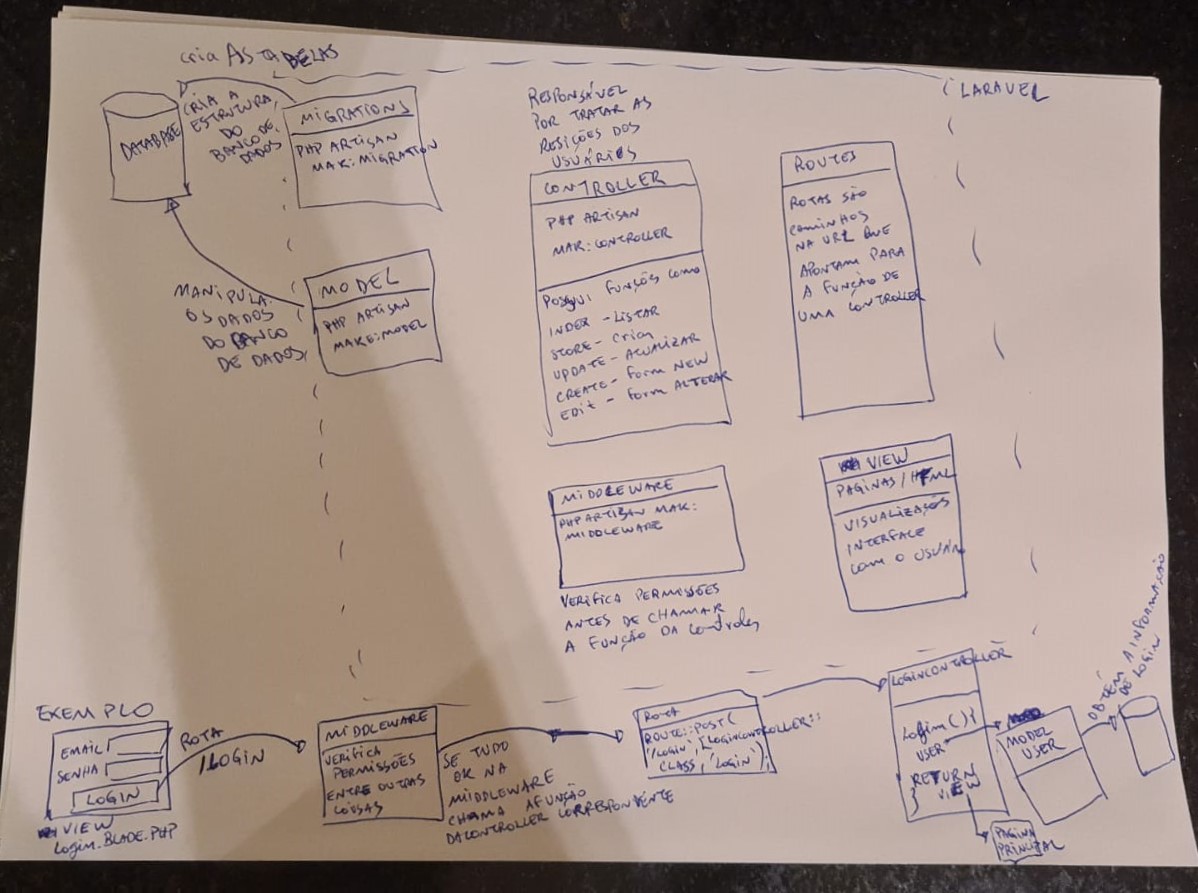 cria AS TABELAS
LARAVEL
DATABASE
CRIA A
ESTRUTURA,
DO
BANCO DE
DADOS
MIGRATIONS
PHP ARTISAN
MAK:MIGRATION
MANIPULA
OS DADOS
DO BANCO
DE DADOS,
MODEL
PHP ARTISAN
MAKE:MODEL
RESPONSÁVEL
POR TRATAR AS
DOS
USUÁRIOS
CONTROLLER
PHP ARTISAN
MAK:CONTROLLER
POSSUI FUNÇÕES COMO
INDEX - LISTAR
STORE - Criar
UPDATE - ATUALIZAR
CREATE - Form NEW
EDit - Form ALTERAR
ROUTES
ROTAS SÃO
CAMINHOS
NA URL QUE
APONTAM PARA
A FUNÇÃO DE
UMA CONTROLLER
MIDDLEWARE
PHP ARTISAN MAK:
MIDDLEWARE
VERIFICA PERMISSÕES
ANTES DE CHAMAR
A FUNÇÃO DA
VIEW
PAGINAS/HTML
INTERFACE
COM O
EXEMPLO
EMAIL
SENHA
LOGIN
VIEW
Login.BLADE.PHP
ROTA
/LOGIN
MIDDLEWARE
VERIFICA
PERMISSÕES
ENTRE OUTRAS
COISAS
SE TUDO
OK NA
MIDDLEWARE
CHAMA A FUNÇÃO
DA CONTROLLER CORRESPONDENTE
ROTA
ROUTE::POST(
'/LOGIN', [LOGINCONTROLLER::
CLASS, 'LOGIN');
LOGINCONTROLLER
Login(){
USER
RETURN
VIEW
MODEL
USER
PAGINA
PRINCIPAL
OBTÉM A INFORMAÇÃO
DE LOGIN